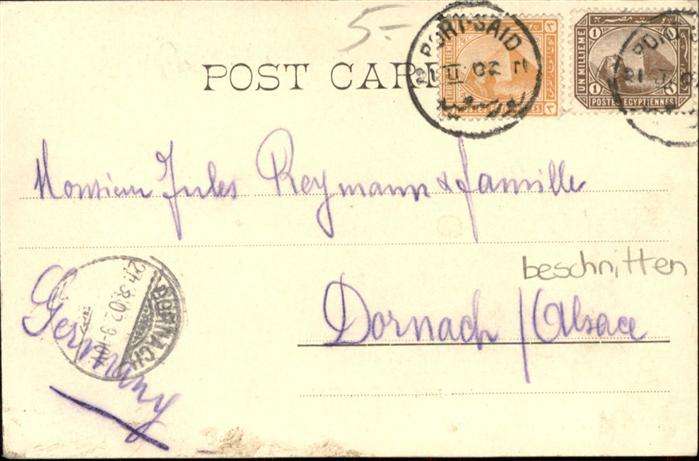 5.-
POST CARD
PORT-SAID
21 II 02
بورسعيد
UN MILLIEME
1 1
POSTES EGYPTIENNES
Monsieur Jules Reymann & famille
beschnitten
Dornach / Alsace
Germany
DORNACH